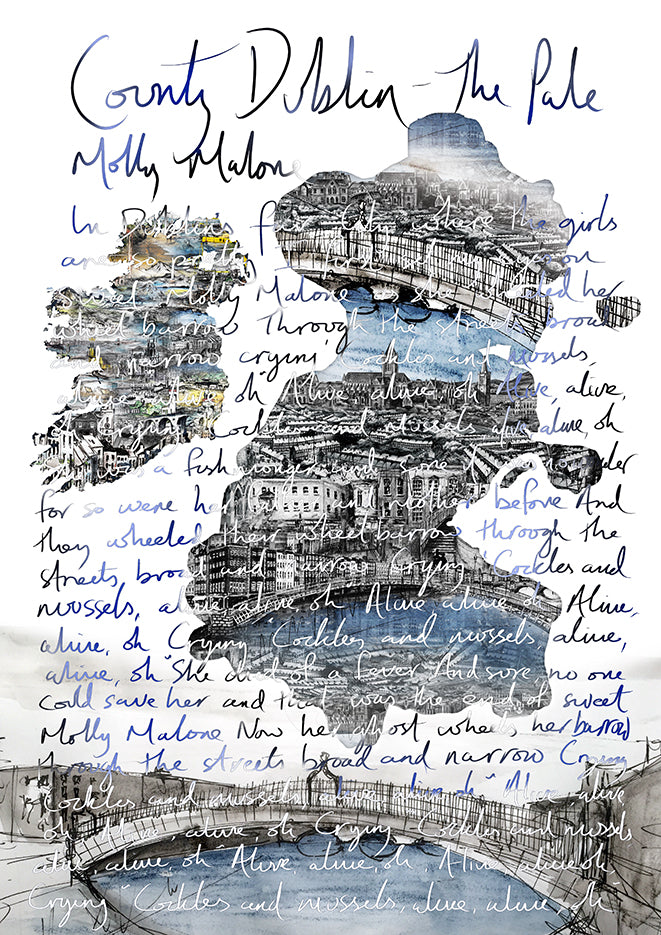 County Dublin - The Pale
Molly Malone
In Dublins fair City where the girls
are so pretty I first set my eyes on
sweet Molly Malone as she wheeled her
wheel barrow Through the streets broad
and narrow crying "Cockles and mussels,
alive alive oh" Alive alive, oh Alive, alive,
oh Crying "Cockles and mussels alive alive, oh
a fish monger and
for so were her and mother before And
they wheeled their wheel barrow through the
streets, broad and narrow Crying "Cockles and
mussels, alive alive, oh" Alive alive oh Alive,
alive, oh Crying "Cockles and mussels, alive,
alive, oh" She died of a fever And sure, no one
could save her and that was the end of sweet
Molly Malone Now her ghost wheels her barrow
Through the streets broad and narrow Crying
"Cockles and mussels, alive, alive, oh" Alive, alive
oh Alive, alive, oh Crying "Cockles and mussels
alive, alive, oh" Alive, alive, oh, Alive, alive oh
Crying "Cockles and mussels, alive, alive, oh"